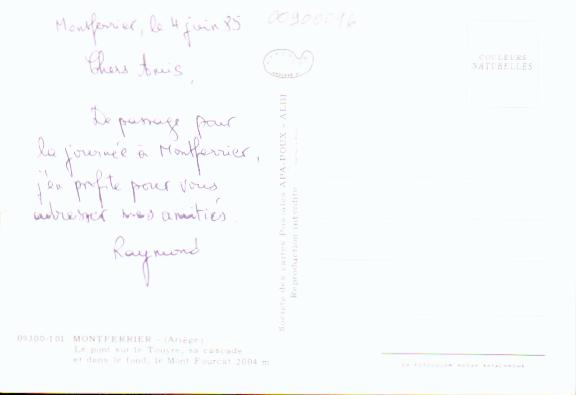 Montferrier, le 4 juin 85
00900016
Chers Amis,
De passage pour
la journée à Montferrier,
j'en profite pour vous
adresser mes amitiés.
Raymond
COULEURS
NATURELLES
Société des cartes Postales APA-POUX - ALBI
Reproduction interdite
09300-101 MONTFERRIER - (Ariège)
Le pont sur le Touyre, sa cascade
et dans le fond, le Mont Fourcat 2004 m